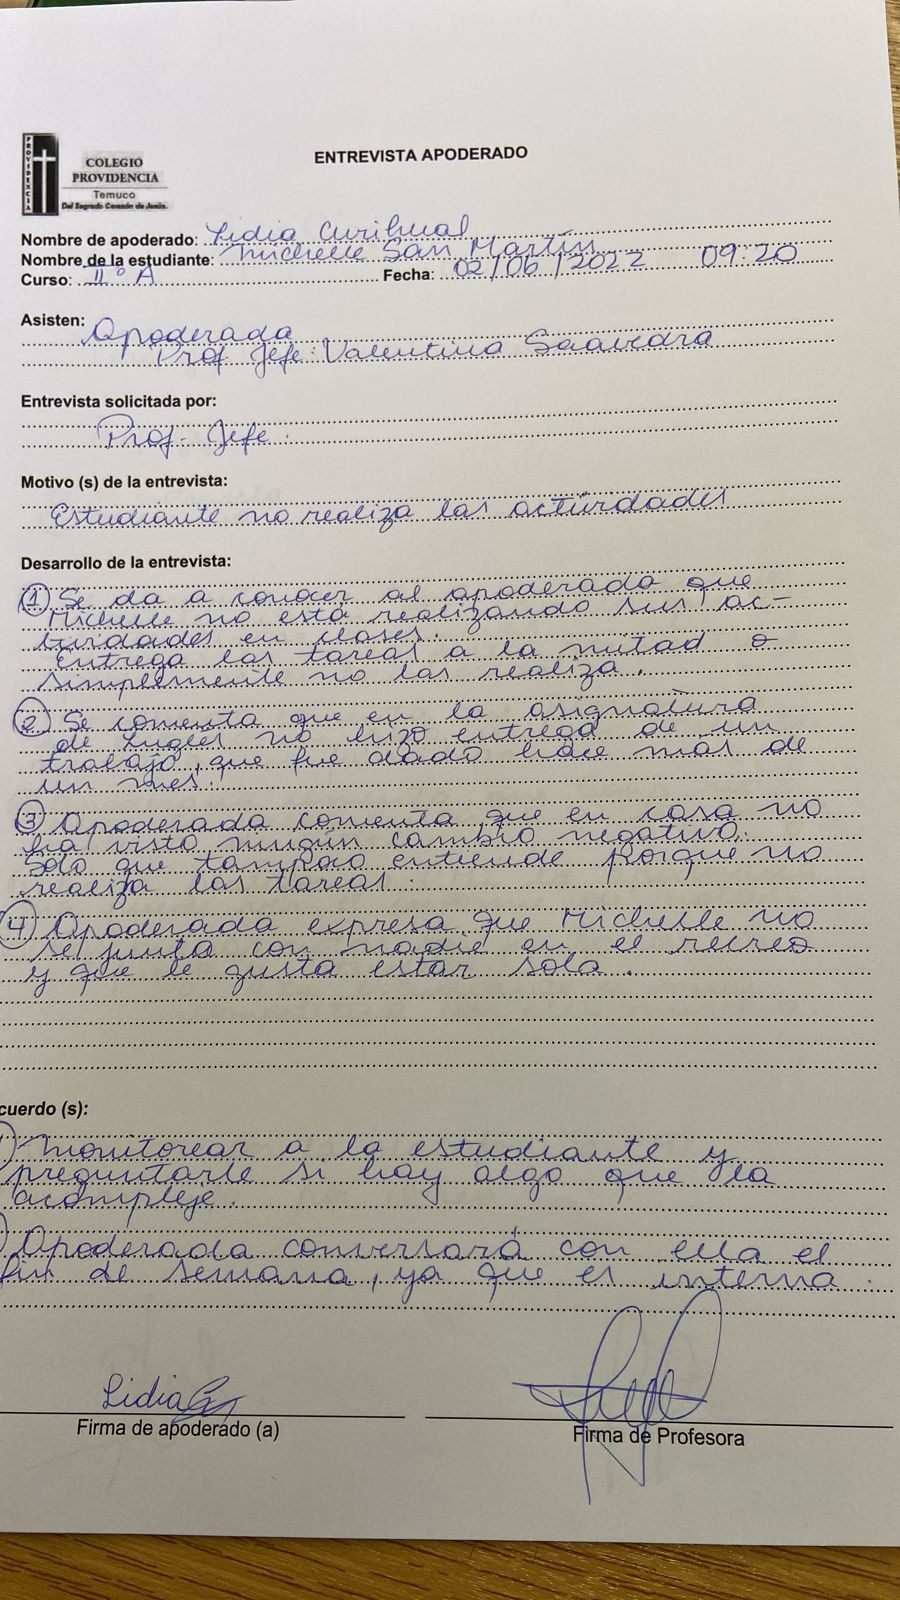 PROVIDENCIA
COLEGIO
PROVIDENCIA
Temuco
Del Sagrado Corazón de Jesús.
ENTREVISTA APODERADO
Nombre de apoderado: Lidia Curihual
Nombre de la estudiante: Michelle San Martín
Curso: II° A Fecha: 02/06/2022 09:20
Asisten: Apoderada
Prof. Jefe: Valentina Saavedra
Entrevista solicitada por:
Prof. Jefe.
Motivo (s) de la entrevista:
Estudiante no realiza las actividades
Desarrollo de la entrevista:
1 Se da a conocer al apoderada que
Michelle no está realizando sus ac-
tividades en clases.
Entrega las tareas a la mitad o
simplemente no las realiza.
2 Se comenta que en la asignatura
de Inglés no hizo entrega de un
trabajo, que fue dado hace mas de
un mes.
3 Apoderada comenta que en casa no
ha visto ningún cambio negativo.
Solo que tampoco entiende porque no
realiza las tareas.
4 Apoderada expresa que Michelle no
se junta con nadie en el recreo
y que le gusta estar sola.
cuerdo (s):
Monitorear a la estudiante y
preguntarle si hay algo que la
acompleje.
Apoderada conversará con ella el
fin de semana, ya que es interna.
Lidia
Firma de apoderado (a)
Firma de Profesora